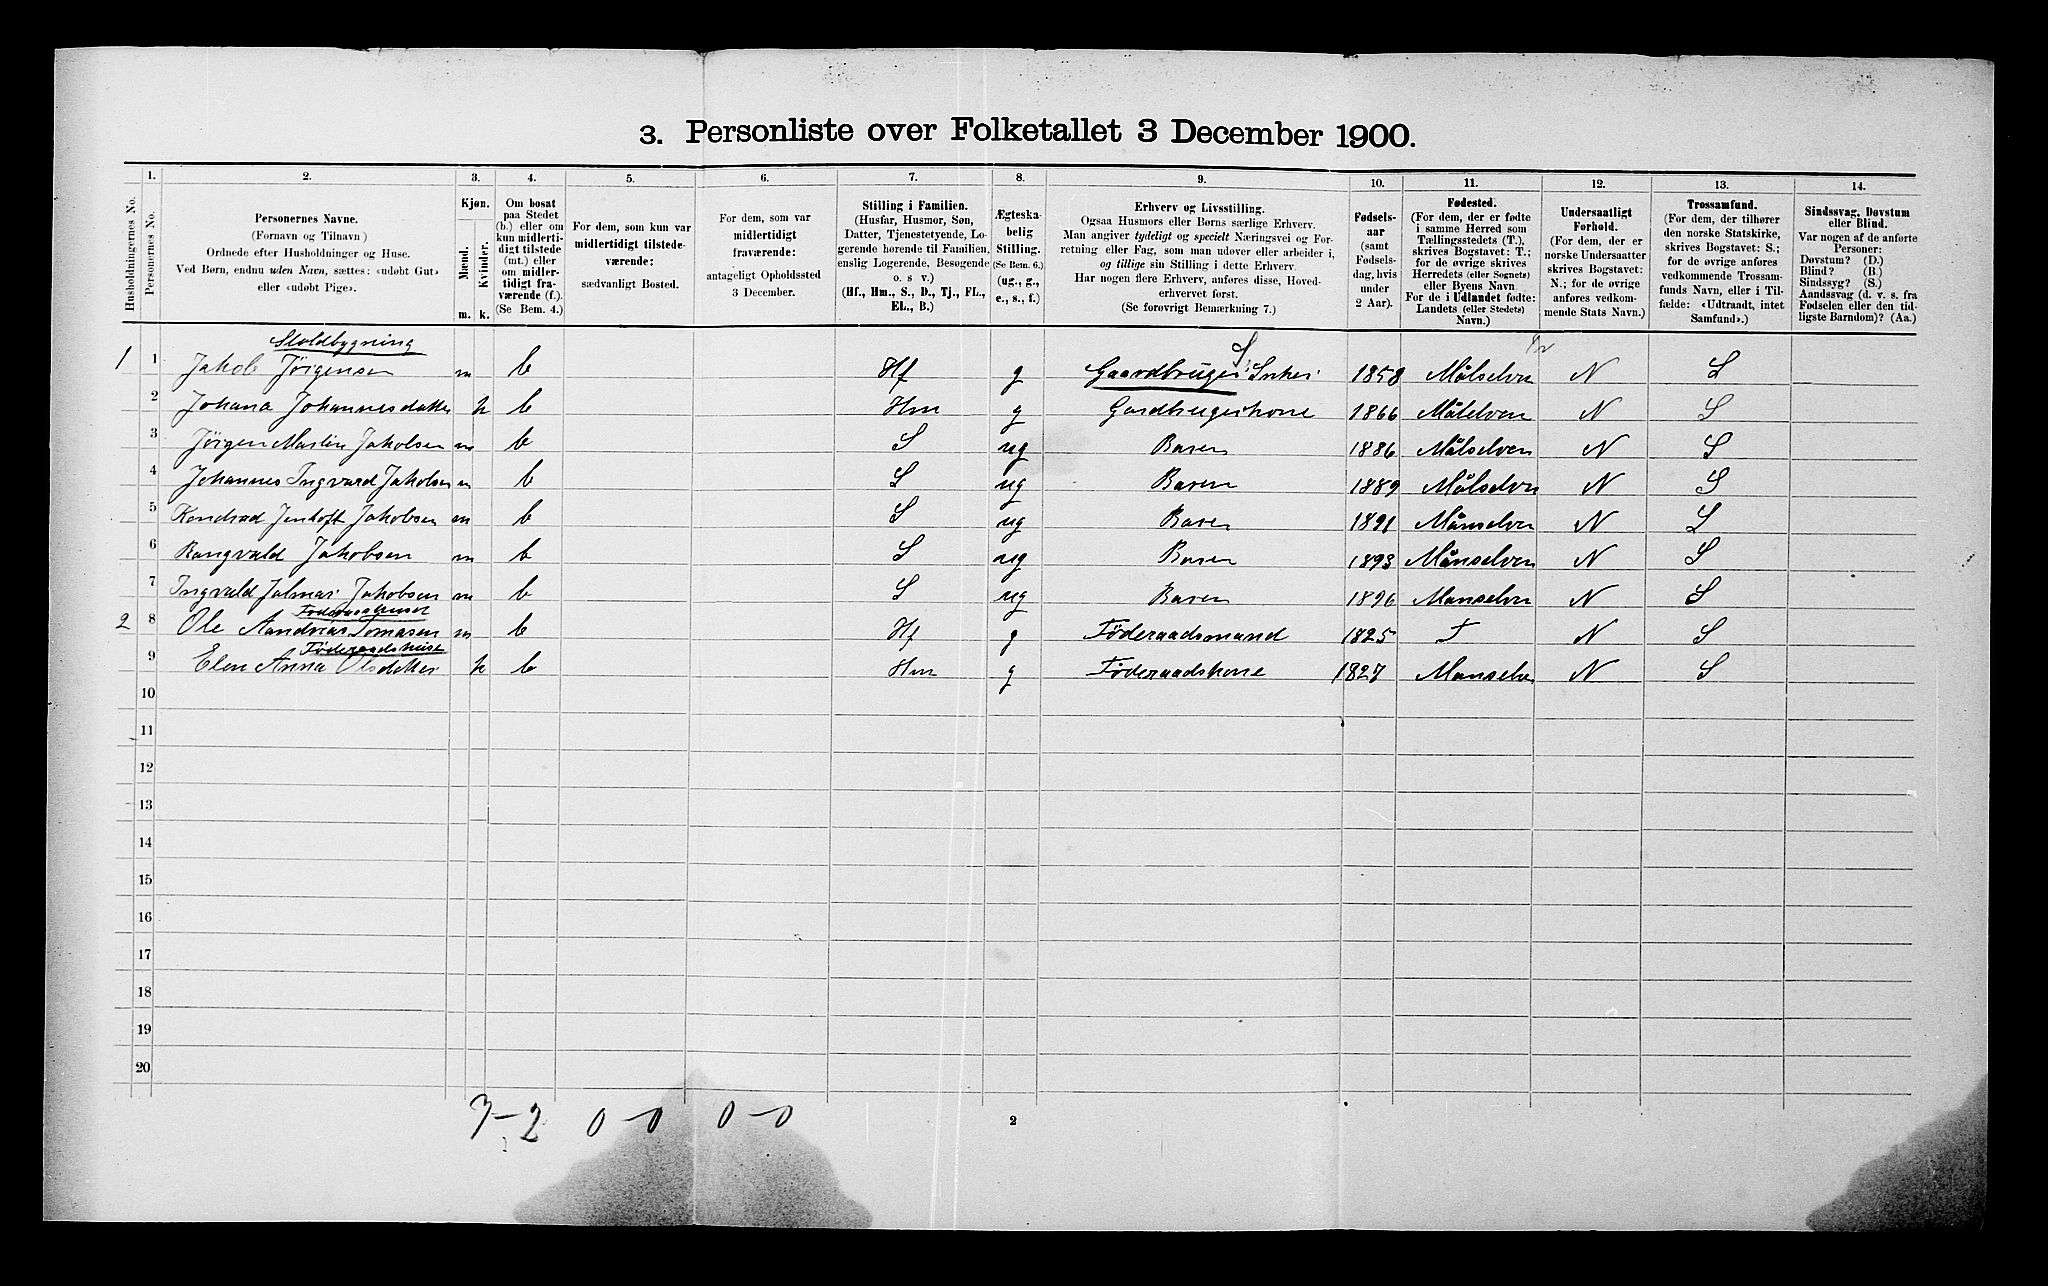 3. Personliste over Folketallet 3 December 1900.
1. 2. 3. 4. 5. 6. 7. 8. 9. 10. 11. 12. 13. 14.
Husholdningernes No.
Personernes No.
Personernes Navne.
(Fornavn og Tilnavn)
Ordnede efter Husholdninger og Huse.
Ved Børn, endnu uden Navn, sættes: «udøbt Gut»
eller «udøbt Pige».
Kjøn.
Mænd.
Kvinder.
m. k.
Om bosat
paa Stedet
(b.) eller om
kun midlerti-
digt tilstede
(mt.) eller
om midler-
tidigt fra-
værende (f.).
(Se Bem. 4.)
For dem, som kun var
midlertidigt tilstede-
værende:
sædvanligt Bosted.
For dem, som var
midlertidigt
fraværende:
antageligt Opholdssted
3 December.
Stilling i Familien.
(Husfar, Husmor, Søn,
Datter, Tjenestetyende, Lo-
gerende hørende til Familien,
enslig Logerende, Besøgende
o. s v.)
(Hf., Hm., S., D., Tj., FL.,
EL., B.)
Ægteska-
belig
Stilling.
(Se Bem. 6.)
(ug., g.,
e., s., f.)
Erhverv og Livsstilling.
Ogsaa Husmors eller Børns særlige Erhverv.
Man angiver tydeligt og specielt Næringsvei og For-
retning eller Fag, som man udøver eller arbeider i,
og tillige sin Stilling i dette Erhverv.
Har nogen flere Erhverv, anføres disse, Hoved-
erhvervet først.
(Se forøvrigt Bemærkning 7.)
Fødsels-
aar
(samt
Fødsels-
dag, hvis
under
2 Aar).
Fødested.
(For dem, der er fødte
i samme Herred som
Tællingsstedets (T.),
skrives Bogstavet: T.;
for de øvrige skrives
Herredets (eller Sognets)
eller Byens Navn
For de i Udlandet fødte:
Landets (eller Stedets)
Navn.)
Undersaatligt
Forhold.
(For dem, der er
norske Undersaatter
skrives Bogstavet:
N.; for de øvrige
anføres vedkom-
mende Stats Navn.)
Trossamfund.
(For dem, der tilhører
den norske Statskirke,
skrives Bogstavet: S.;
for de øvrige anføres
vedkommende Trossam-
funds Navn, eller i Til-
fælde: «Udtraadt, intet
Samfund».)
Sindssvag, Døvstum
eller Blind.
Var nogen af de anførte
Personer:
Døvstum? (D.)
Blind? (B.)
Sindssyg? (S.)
Aandssvag (d. v. s. fra
Fødselen eller den tid-
ligste Barndom)? (Aa.)
1 1 Jakob Jørgensen m b Hf g Gaardbruger S 1858 Målselven N S
2 Johana Johannesdatter k b Hm g Gardbrugerkone 1866 Målelven N S
3 Jørgen Martin Jakobsen m b S ug Baren 1886 Målselven N S
4 Johannes Ingvard Jakobsen m b S ug Baren 1889 Målselven N S
5 Kondrad Jentoft Jakobsen m b S ug Baren 1891 Månselven N S
6 Rangvald Jakobsen m b S ug Baren 1893 Månselven N S
7 Ingvald Jalmar Jakobsen m b S ug Baren 1896 Manselven N S
2 8 Ole Aandreas Tomasen m b Hf g Føderaadsmand 1825 T N S
Føderaadshuset
9 Elen Anna Olsdatter k b Hm g Føderaadskone 1827 Manselve N S
10
11
12
13
14
15
16
17
18
19
20
7-2 0-0 0-0
2